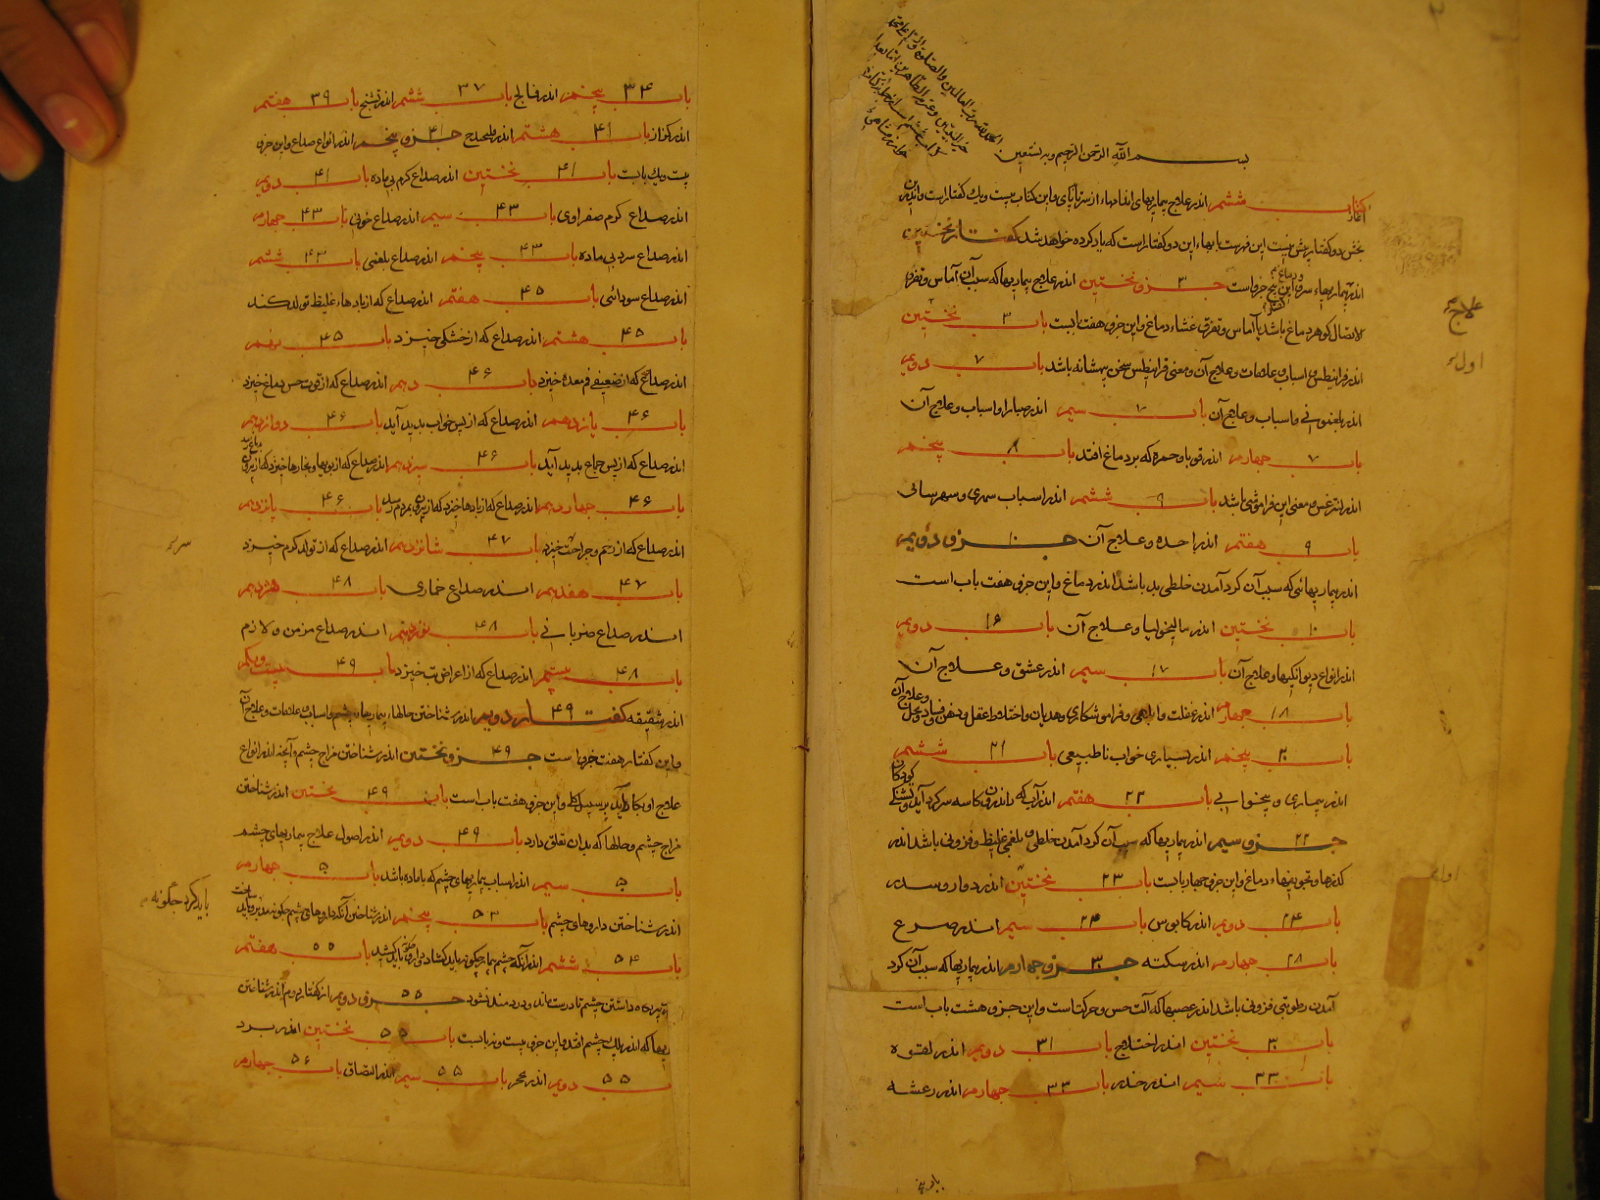 الحمد لله رب العالمین والصلوة والسلام علی محمد
خیر النبیین وعترته الطاهرین اما بعد
کتاب ششم است از ذخیره
خوارزمشاهی
بسم الله الرحمن الرحیم وبه نستعین
کتاب ششم اندر علاج بیماریهای اندامها از سر تا پای و این کتاب بیست و یک گفتار است و اندرین
بخش دو گفتار بیش نیست این فهرست بابهاء این دو گفتار است که یاد کرده خواهد شد گفتار نخستین
اندر بیماریهاء سر و دماغ این پنج جزو است جزو نخستین ۳ اندر علاج بیماریها که سبب آن آماس و تفرق
الاتصال گوهر دماغ باشد یا آماس و تفرق غشاء دماغ و این جزو هفت بابست باب ۳ نخستین
اندر قرانیطس و اسباب و علامات و علاج آن و معنی قرانیطس سخن بیهشانه باشد باب ۷ دویم
اندر و اسباب و علاج آن باب ۷ سیم اندر صبارا و اسباب و علاج آن
باب ۷ چهارم اندر قوبا و حمره که بر دماغ افتد باب ۸ پنجم
اندر لیثرغس و معنی این فراموشی باشد باب ۹ ششم اندر اسباب سهری و سهر سباتی
باب ۹ هفتم اندر اخذه و علاج آن جزو دویم ۱۰
اندر بیماریهائی که سبب آن گرد آمدن خلطی بد باشد اندر دماغ و این جزو هفت باب است
باب ۱۰ نخستین اندر مالیخولیا و علاج آن باب ۱۶ دویم
اندر انواع دیوانگیها و علاج آن باب ۱۷ سیم اندر عشق و علاج آن
باب ۱۸ چهارم اندر غفلت و ابلهی و فراموشکاری و هذیان و اختلاط عقل و ذهن و فساد و علاج آن
باب ۲۰ پنجم اندر بسیاری خواب ناطبیعی باب ۲۱ ششم
اندر بیداری و بیخوابی باب ۲۲ هفتم اندر آب که اندرون کاسه سر گرد آید کودکان
جزو سیم ۲۲ اندر بیماریها که سبب آن گرد آمدن خلطی بلغمی غلیظ و فزونی باشد اندر
گذرها و تجویفهاء دماغ و این جزو چهار بابست باب ۲۳ نخستین اندر دوار و سدر
باب ۲۴ دویم اندر کابوس باب ۲۴ سیم اندر صرع
باب ۲۸ چهارم اندر سکته جزو چهارم ۳۰ اندر بیماریها که سبب آن گرد
آمدن رطوبتی فزونی باشد اندر عصبها که آلت حس و حرکت است و این جزو هشت باب است
باب ۳۰ نخستین اندر اختلاج باب ۳۱ دویم اندر لقوه
باب ۳۳ سیم اندر خدر باب ۳۳ چهارم اندر رعشه
علاج
اول
باب
باب ۳۴ پنجم اندر فالج باب ۳۷ ششم اندر تشنج باب ۳۹ هفتم
اندر کزاز باب ۴۱ هشتم اندر جزو پنجم ۴۱ اندر انواع صداع و این جزو
بیست و یک بابست باب ۴۱ نخستین اندر صداع گرم بی ماده باب ۴۱ دویم
اندر صداع گرم صفراوی باب ۴۳ سیم اندر صداع خونی باب ۴۳ چهارم
اندر صداع سرد بی ماده باب ۴۳ پنجم اندر صداع بلغمی باب ۴۳ ششم
اندر صداع سودائی باب ۴۵ هفتم اندر صداع که از بادهاء غلیظ تولد کند
باب ۴۵ هشتم اندر صداع که از خشکی خیزد باب ۴۵ نهم
اندر صداع که از ضعیفی فم معده خیزد باب ۴۶ دهم اندر صداع که از قوت حس دماغ خیزد
باب ۴۶ یازدهم اندر صداع که از پس خواب پدید آید باب ۴۶ دوازدهم
اندر صداع که از پس جماع پدید آید باب ۴۶ سیزدهم اندر صداع که از بویها و بخارها خیزد که از بیرون
باب ۴۶ چهاردهم اندر صداع که از بادها خیزد که از بیرون بمردم رسد باب ۴۶ پانزدهم
اندر صداع که از زخم و جراحت خیزد باب ۴۷ شانزدهم اندر صداع که از تولد کرم خیزد
باب ۴۷ هفدهم اندر صداع خماری باب ۴۸ هژدهم
اندر صداع ضربانی باب ۴۸ نوزدهم اندر صداع مزمن و لازم
باب ۴۸ بیستم اندر صداع که از اعراض تب خیزد باب ۴۹ بیست و یکم
اندر شقیقه گفتار دویم ۴۹ اندر شناختن حالهاء بیماریهاء چشم و اسباب و علامات و علاج آن
و این گفتار هفت جزو است جزو نخستین ۴۹ اندر شناختن مزاج چشم و آنچه اندر انواع
علاج او بکار آید بر سبیل کلی و این جزو هفت باب است باب ۴۹ نخستین اندر شناختن
مزاج چشم و حالها که بدان تعلق دارد باب ۴۹ دویم اندر اصول علاج بیماریهای چشم
باب ۵۰ سیم اندر اسباب بیماریهای چشم که با ماده باشد باب ۵۰ چهارم
اندر شناختن داروهای چشم باب ۵۳ پنجم اندر شناختن آنکه داروهای چشم چگونه
باب ۵۴ ششم اندر آنکه چشم بیمار چگونه باید گشاد باب ۵۵ هفتم
تدبیر نگاه داشتن چشم تا درست ماند و دردمند نشود جزو دویم ۵۵ از گفتار دوم اندر شناختن
بیماریها که اندر پلک چشم افتد و این جزو بیست و نه بابست باب ۵۵ نخستین اندر برد
باب ۵۵ دویم اندر تحجر باب ۵۵ سیم اندر التصاق باب ۵۶ چهارم
باید کرد چگونه